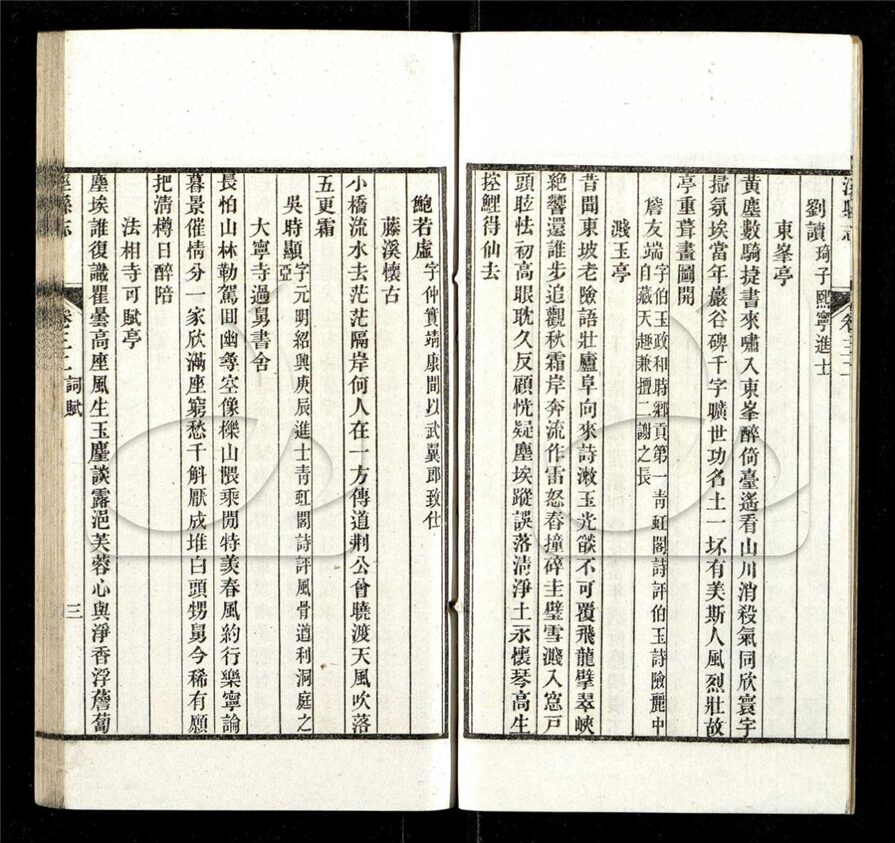 劉讀琦子熙寧進士
東峯亭
黃塵數騎捷書來嘯入東峯醉倚臺遙看山川消殺氣同欣寰宇
掃氛埃當年巖谷碑千字曠世功名土一坏有美斯人風烈壯故
亭重葺畫圖開
詹友端字伯玉政和時鄉貢第一靑虹閣詩評伯玉詩險麗中
自藏天趣兼擅二謝之長
濺玉亭
昔聞東坡老險語壯廬阜向來詩漱玉光燄不可覆飛龍擘翠峽
絶響還誰步追觀秋霜岸奔流作雷怒舂撞碎圭璧雪濺入窓戸
頭眩怯初高眼眈久反顧恍疑塵埃蹤誤落清淨土永懷琴高生
控鯉得仙去
鮑若虛字仲實靖康間以武翼郎致仕
藤溪懷古
小橋流水去茫茫隔岸何人在一方傳道荆公曾曉渡天風吹落
五更霜
吳時顯字元明紹興庚辰進士靑虹閣詩評風骨道利洞庭之
亞
大寧寺過舅書舍
長怕山林勒駕回幽尋空像櫟山隈乘閒特羨春風約行樂寧論
暮景催情分一家欣滿座窮愁千斛厭成堆白頭甥舅今稀有願
把清樽日醉陪
法相寺可賦亭
塵埃誰復識瞿曇高座風生玉麈談露浥芙蓉心與淨香浮薝蔔
縣志 卷三十二 詞賦 三